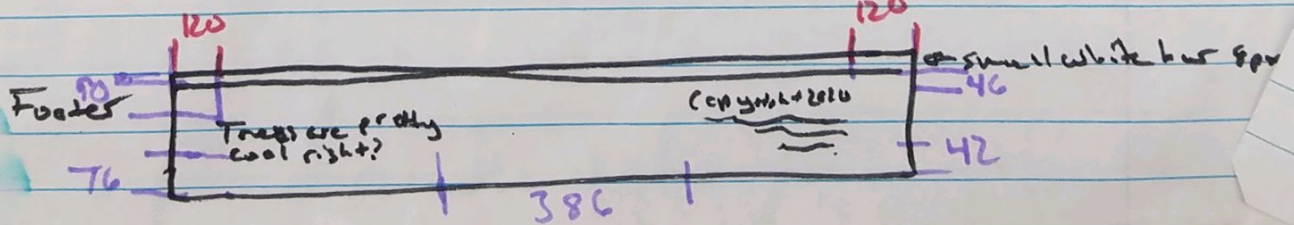 120
120
90
small white bar 8px
46
Footer
Copyright 2020
Trees are pretty
cool right?
42
76
386